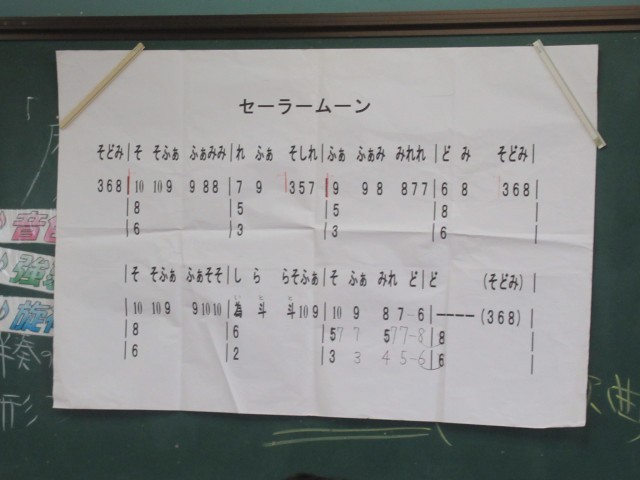 セーラームーン
そどみ|そ そふぁ ふぁみみ|れ ふぁ そしれ|ふぁ ふぁみ みれれ|ど み そどみ|
368|10 109 988|7 9 357|9 98 877|6 8 368|
|8 |5 |5 |8 |
|6 |3 |3 |6 |
|そ そふぁ ふぁそそ|し ら らそふぁ|そ ふぁ みれ ど|ど (そどみ)|
|10 109 91010|為 斗 斗109|10 9 87-6|---- (368)|
|8 |6 |577 577-8|8 |
|6 |2 |3 3 45-6|6 |
音
強
旋
奏
形